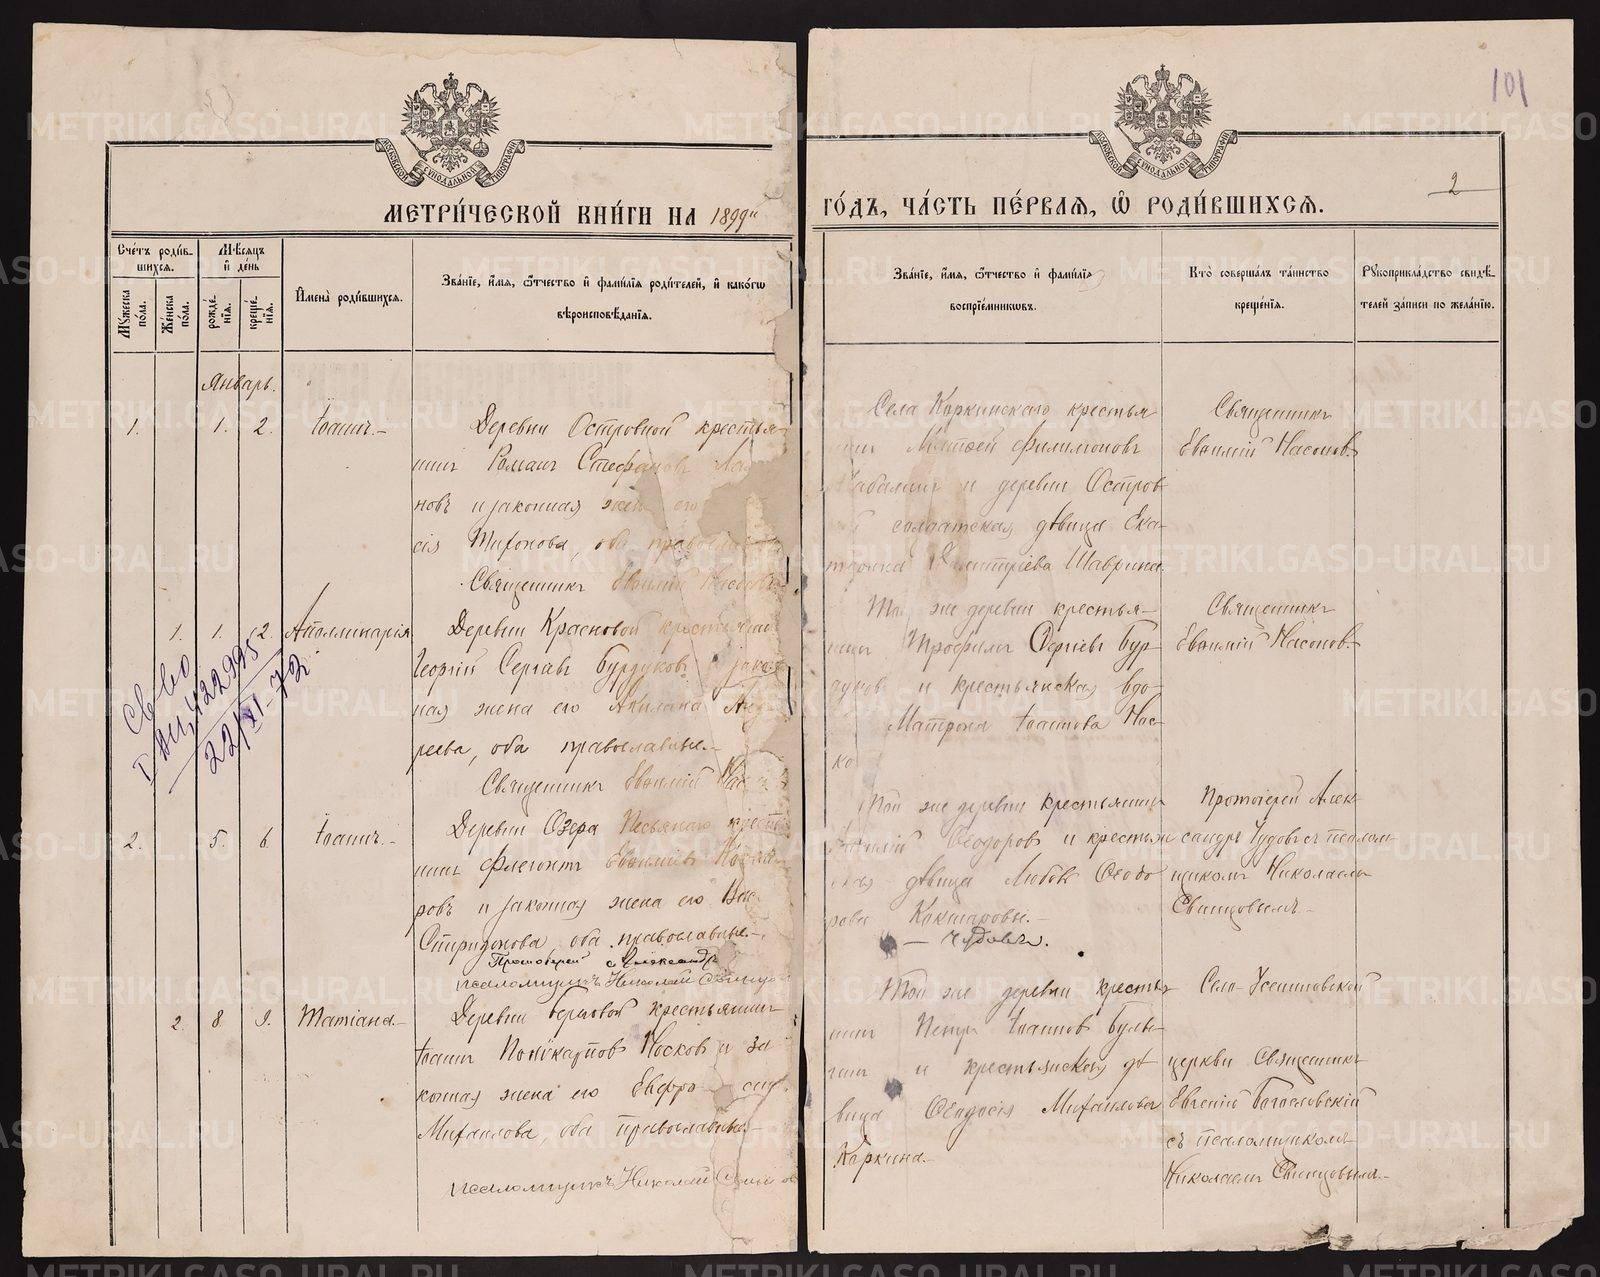 101
2
МОСКОВСКОЙ СУНОДАЛЬНОЙ ТИПОГРАФІИ
МОСКОВСКОЙ СУНОДАЛЬНОЙ ТИПОГРАФІИ
МЕТРИ́ЧЕСКОЙ КНИ́ГИ НА 1899й
ГО́ДЪ, ЧА́СТЬ ПЕ́РВАЯ, Ѽ РОДИ́ВШИХСЯ.
Сче́тъ роди́в-
шихся.
Мѣ́сяцъ
и҆ де́нь
Мꙋ́жеска по́ла.
Же́нска по́ла.
рожде́-
нїя.
креще́-
нїя.
И҆мена̀ роди́вшихся.
Зва́нїе, и҆́мя, ѻ҆́тчество и҆ фами́лїя роди́телей, и҆ како́гѡ
вѣроисповѣ́данїя.
Зва́нїе, и҆́мя, ѻ҆́тчество и҆ фами́лїя
воспрїе́мникѡвъ.
Кто̀ соверша́лъ та́инство
креще́нїя.
Рꙋкоприкла́дство свидѣ́-
телей за́писи по жела́нїю.
Январь.
1. 1. 2. Іоаннъ.-
Деревни Островной крестья-
нинъ Романъ Стефановъ
новъ и законная жена его
сія Тихонова, оба православные
Священникъ Евѳимій Насоновъ
Села Каркинскаго крестья
нинъ Матѳей Филимоновъ
и деревни Остров
солдатская дѣвица Ека-
терина Димитріева Шаврина.
Священникъ
Евѳимій Насонов.
1. 1. 2. Аполлинарія
Деревни Красновой крестьянинъ
Георгій Сергіевъ Бурдуковъ и закон
ная жена его Акилина Анд
реева, оба православные.-
Священникъ Евѳимій Насо
Той же деревни крестья-
нинъ Трофимъ Сергіевъ Бур
дуковъ и крестьянская вдо-
Матрона Іоаннова Нос-
ко
Священникъ
Евѳимій Насонов.
Св-во
I АИ № 422995
22/XI-72
2. 5. 6. Іоаннъ.-
Деревни Озера Песьянаго крестья
нинъ Флегонтъ Евѳиміевъ
ровъ и законная жена его
Спиридонова, оба православные.-
Протоіерей Александръ
псаломщикъ Николай Свинцо
Той же деревни крестьянинъ
Ѳеодоровъ и крестьян
ская дѣвица Любовь Ѳеодо
рова Кокшаровы.-
- Чудовъ.
Протоіерей Алек
сандръ Чудовъ съ псалом
щикомъ Николаемъ
Свинцовымъ.-
2. 8. 9. Татіана.-
Деревни Берговой крестьянинъ
Іоаннъ Поликарповъ Носковъ и за
конная жена его Евфро син
Михаилова, оба православные.-
псаломщикъ Николай Свинцов
Той же деревни крестья
нинъ Петръ Іоанновъ Булы-
гинъ и крестьянская дѣ
вица Ѳеодосія Михаилова
Каркина.-
Села Усениновской
церкви Священникъ
Евгеній Богословскій
съ псаломщикомъ
Николаемъ Свинцовымъ.-
METRIKI.GASO-URAL.RU